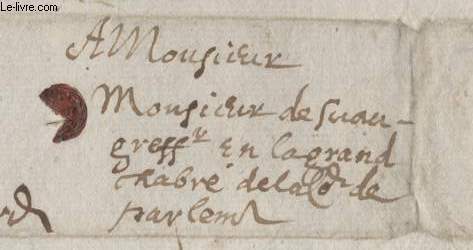 Le-livre.com
A Monsieur
Monsieur de
greffr en la grand
chabre de la de
parlemt